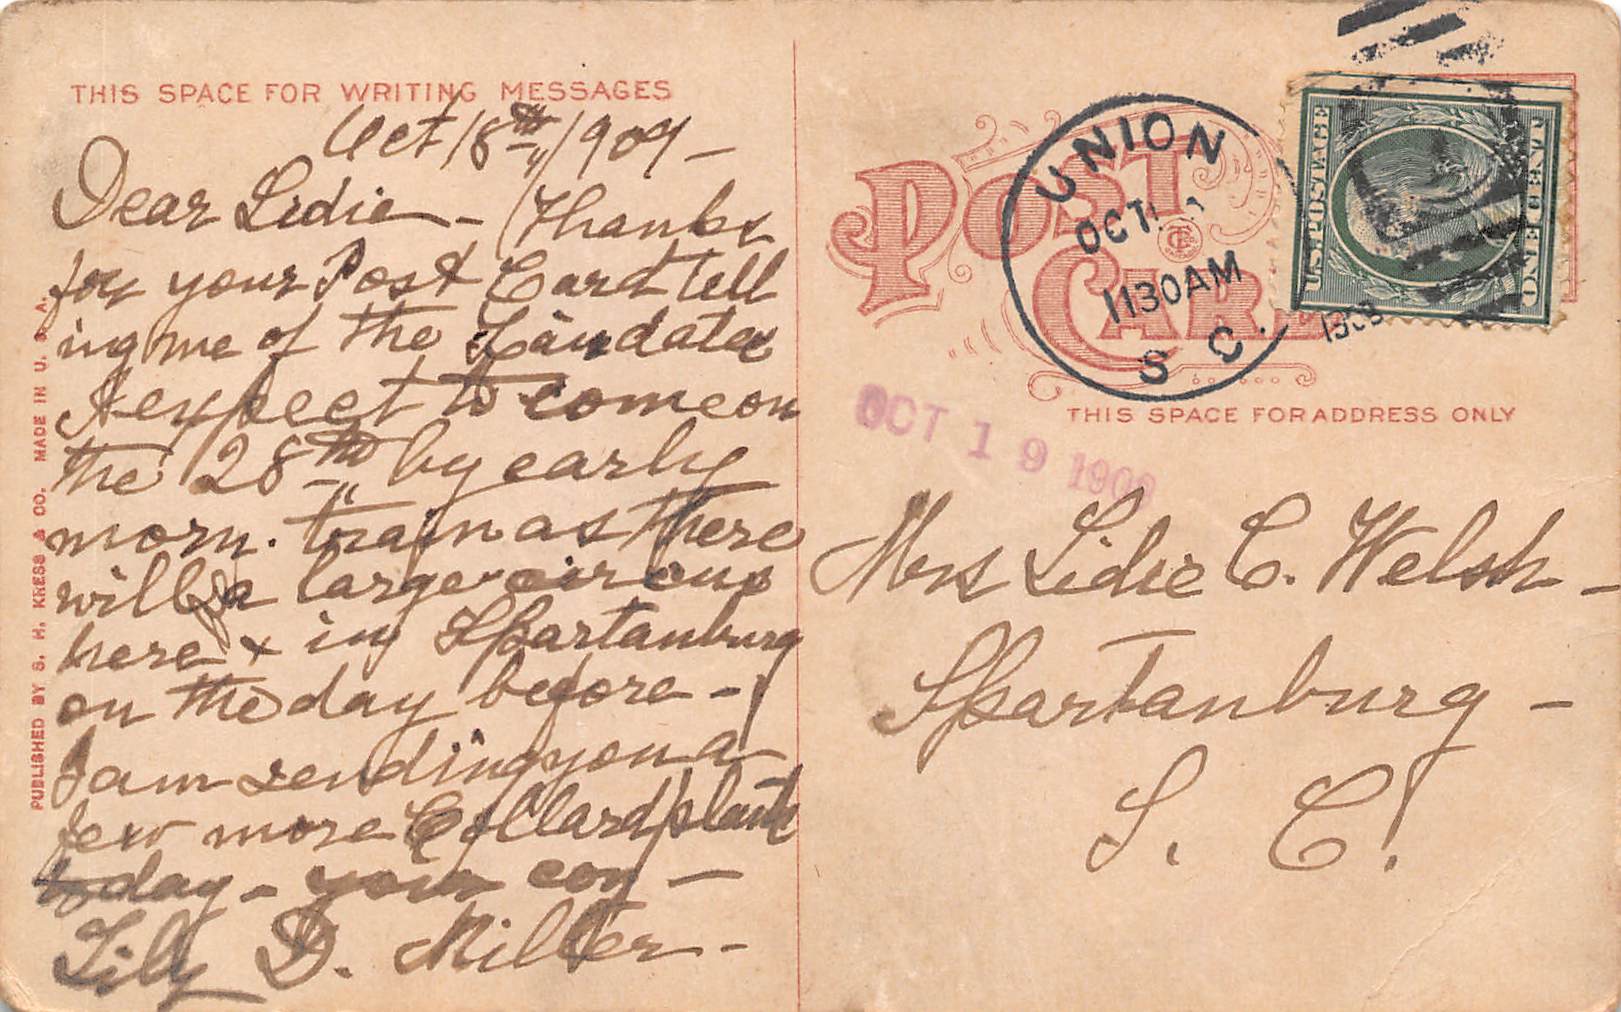 THIS SPACE FOR WRITING MESSAGES
Oct 18th, 1909 -
Dear Lidie - Thanks
for your Post Card tell
ing me of the
I expect to come on
the 28th by early
morn. train as there
will be a large circus
here & in Spartanburg
on the day before -
I am sending you a
few more Collard plants
today - your
Lily D. Miller -
PUBLISHED BY S. H. KRESS & CO. MADE IN U. S. A.
POST
CARD
UNION
OCT
1130AM
S C.
U.S. POSTAGE
ONE CENT
THIS SPACE FOR ADDRESS ONLY
OCT 19 1909
Mrs Lidie C. Welsh -
Spartanburg -
S. C.